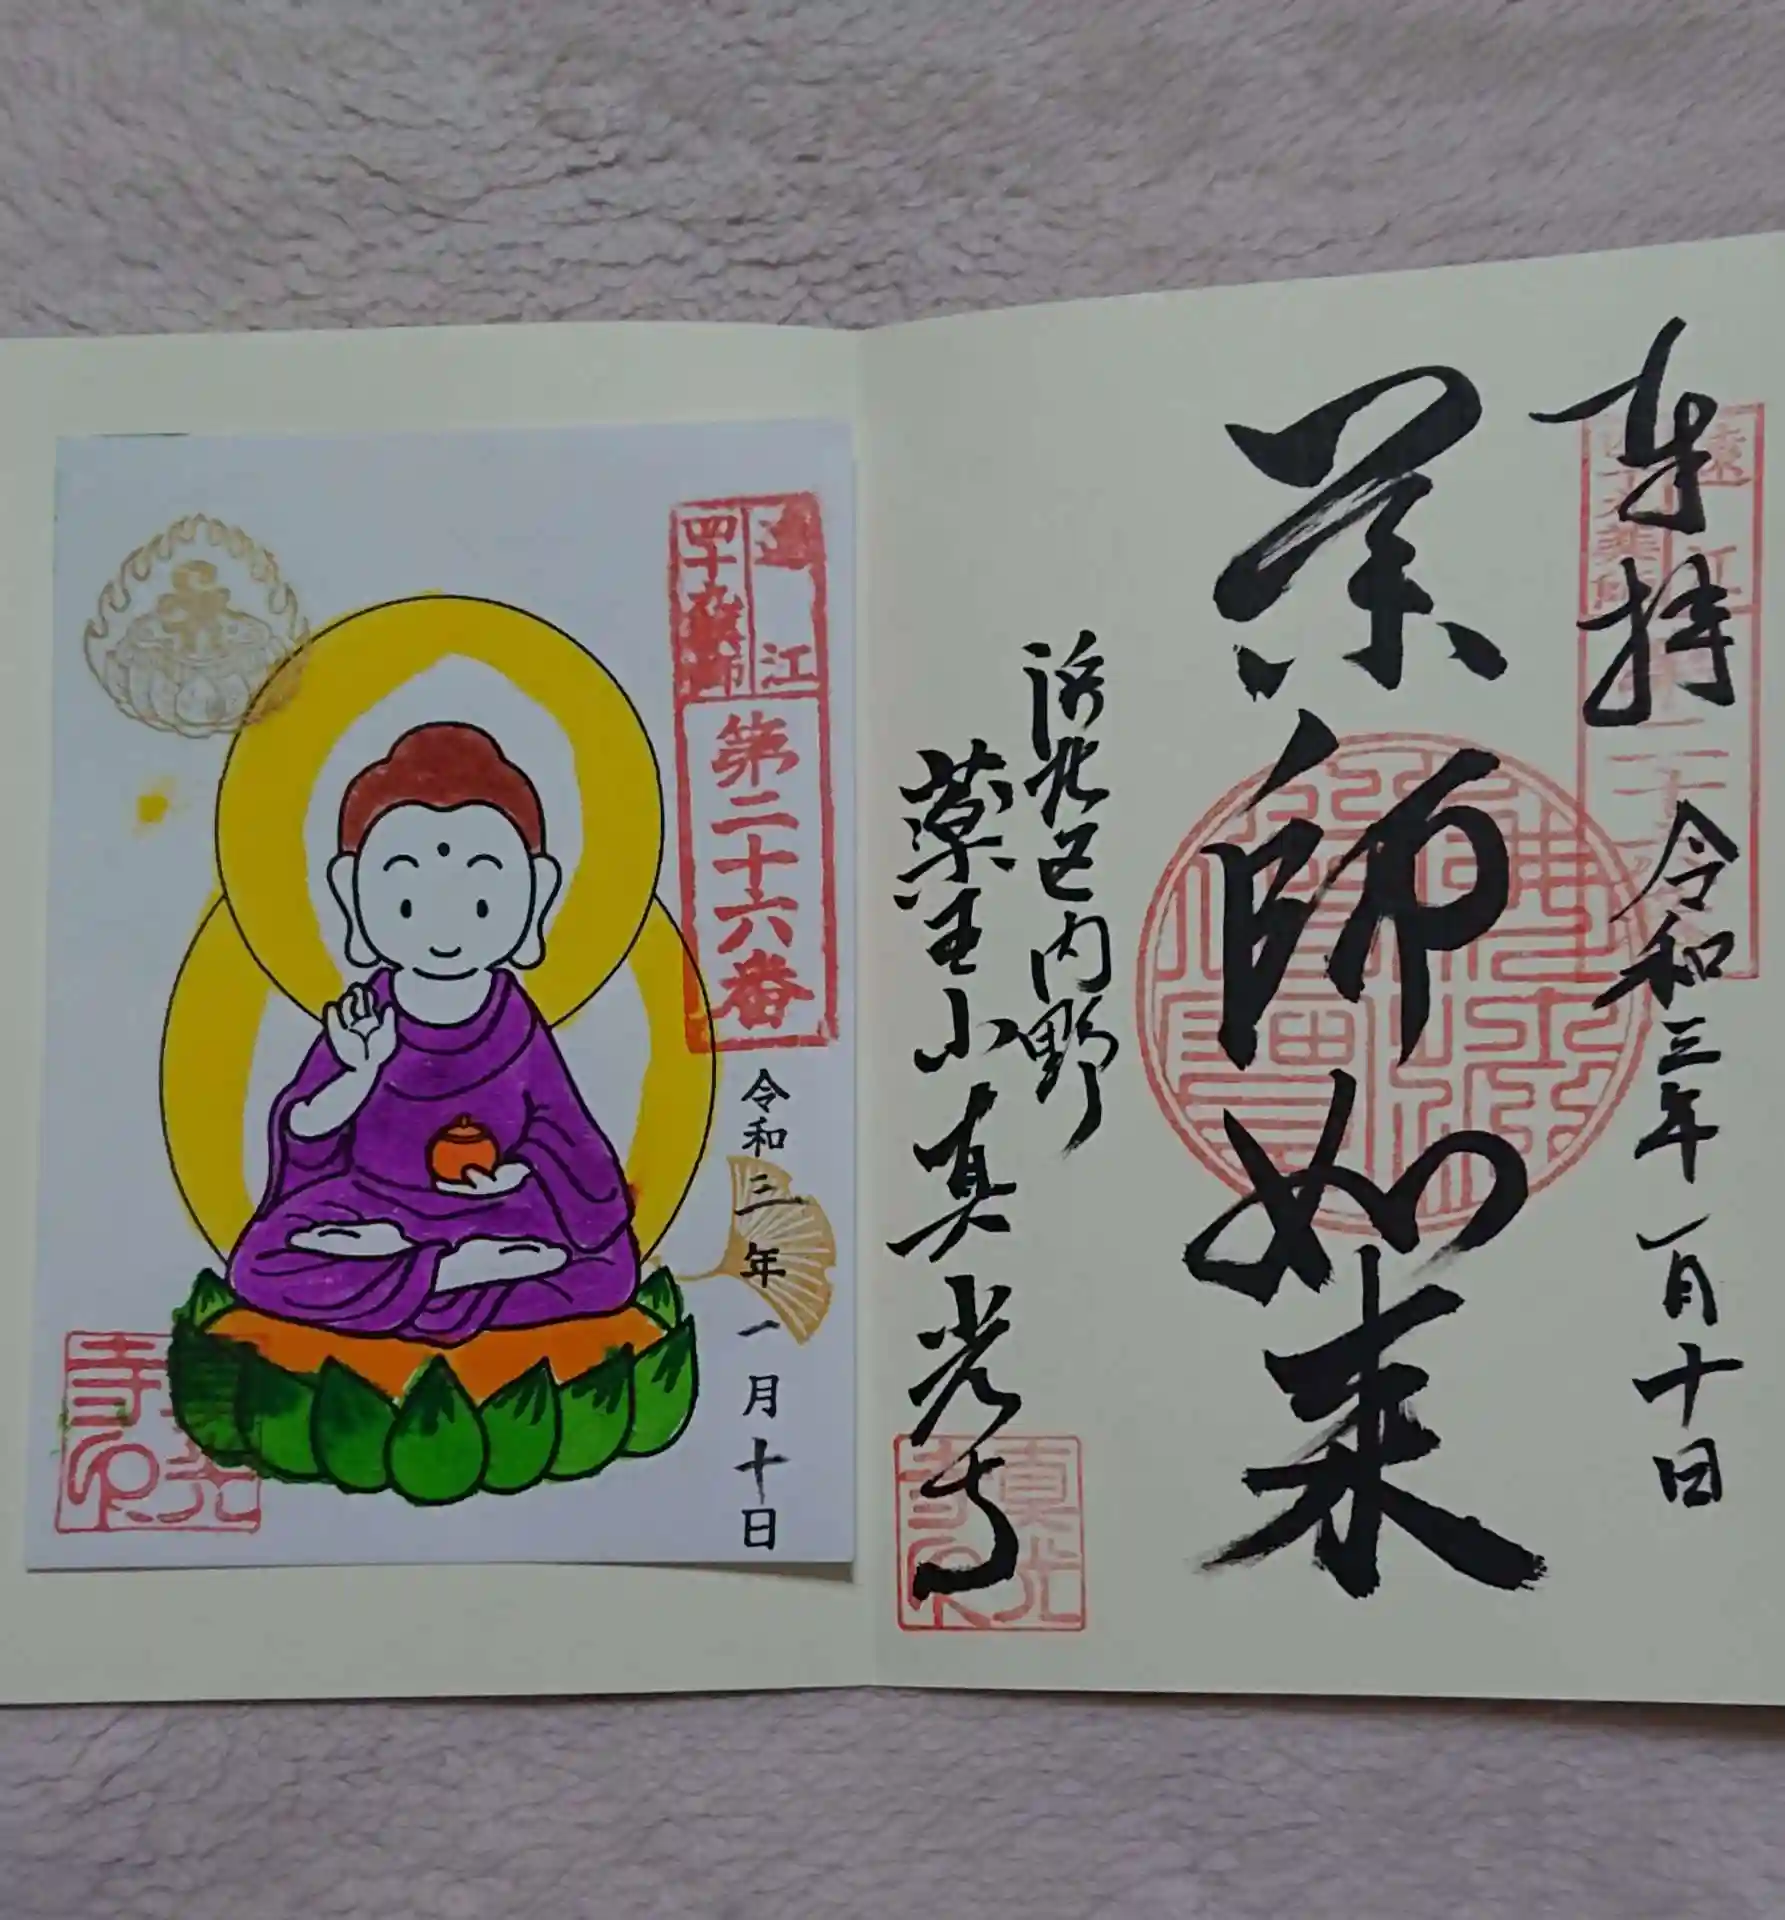 奉拝
令和三年一月十日
遠江
四十九薬師
薬師如来
浜北区内野
薬王山真光寺
真光寺印
遠江
四十九薬師
第二十六番
令和三年一月十日
真光寺印